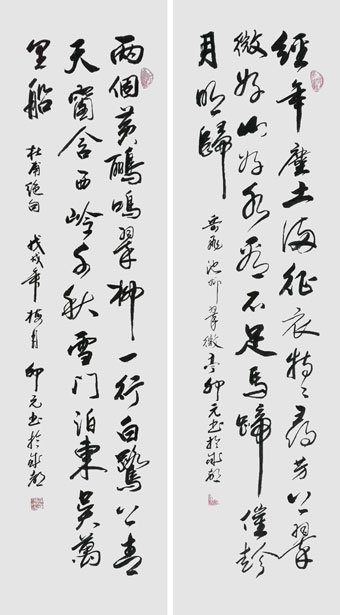 經年塵土滿征衣特〻尋芳上翠
微好山好水看不足馬蹄催趁
月明歸
岳飛池州翠微亭卯元書於成都
两個黃鸝鳴翠柳一行白鷺上青
天窗含西嶺千秋雪門泊東吴萬
里船
杜甫絕句 戊戌年梅月 卯元書於成都